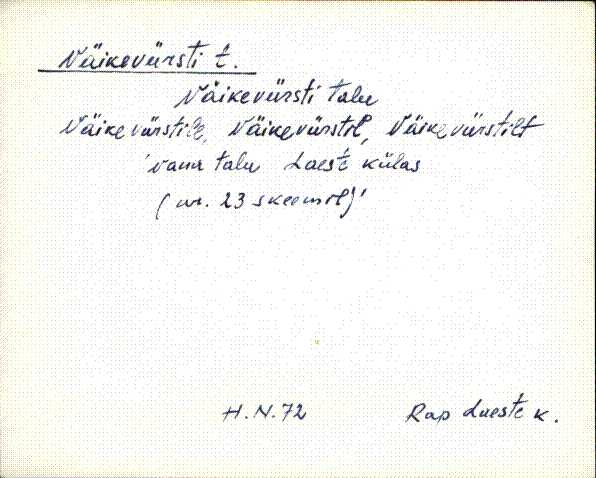 Väikevürsti t.
Väikevürsti talu
Väikevürstile, Väikevürstil, Väikevürstilt
'vana talu Laeste külas
(nr. 23 skeemil)'
H.N.72 Rap Laeste k.